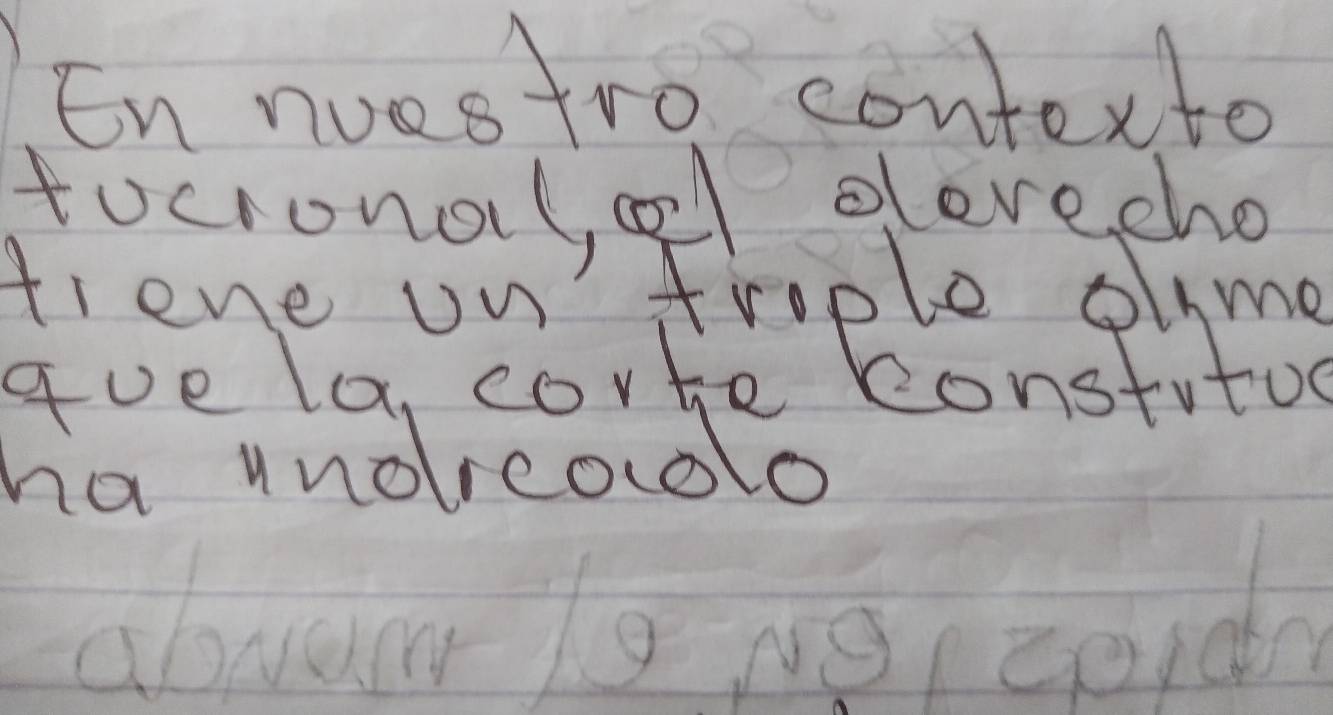 En nuestro contexto
tucional, el derecho
tiene un triple dime
que la corte constituc
ha indicado